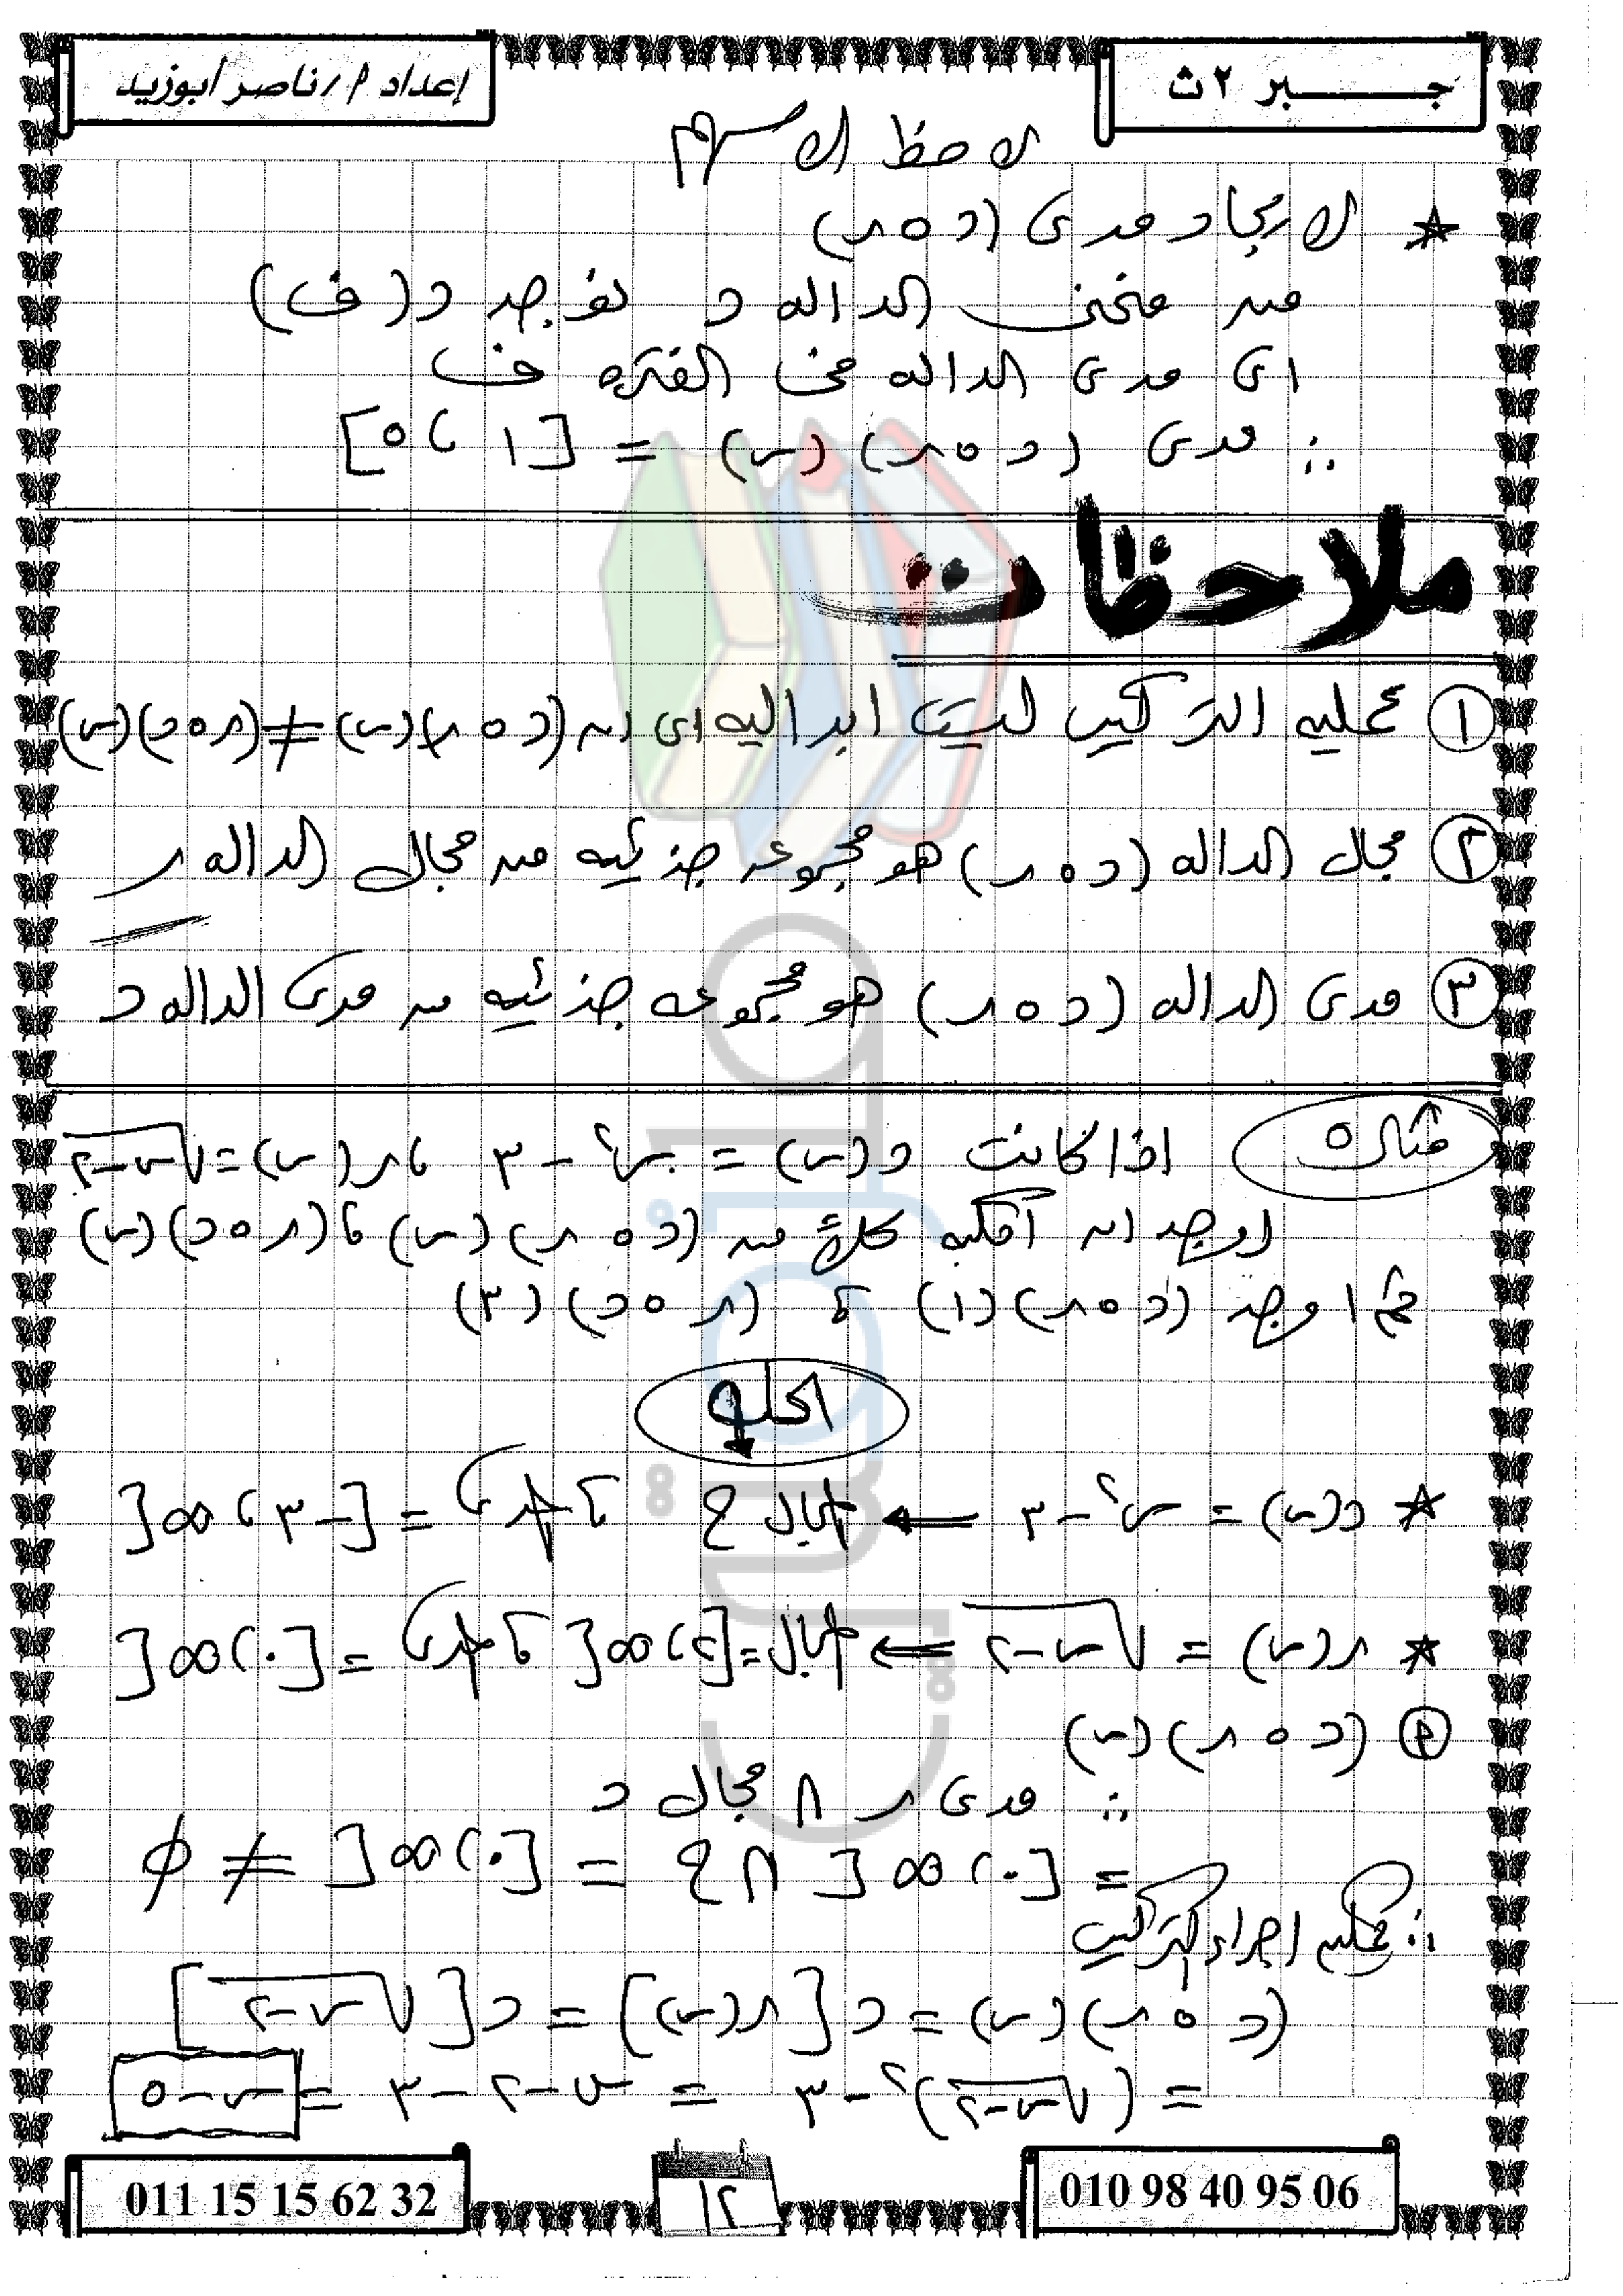 جـــبر ٢ ث
إعداد م / ناصر أبوزيد
لاحظ الاسهم
* لايجاد مدى (د ه ر)
من منحنى الداله د نوجد د(ف)
اى مدى الداله فى الفتره ف
∴ مدى (د ه ر)(س) = [١ ، ٥]
ملاحظات
① عمليه التركيب ليست ابداليه اى ان (د ه ر)(س) ≠ (ر ه د)(س)
② مجال الداله (د ه ر) هو مجموعه جزئيه من مجال الداله ر
③ مدى الداله (د ه ر) هو مجموعه جزئيه من مدى الداله د
مثال ٥ اذا كانت د(س) = س٢ - ٣ ، ر(س) = √س-٢
اوجد ان امكن كلاً من (د ه ر)(س) ، (ر ه د)(س)
ثم اوجد (د ه ر)(١) ، (ر ه د)(٣)
الحل
* د(س) = س٢ - ٣ ← المجال ح ، المدى = [-٣ ، ∞[
* ر(س) = √س-٢ ⇐ المجال = [٢ ، ∞[ ، المدى = [٠ ، ∞[
(د ه ر)(س)
∵ مدى ر ∩ مجال د
= [٠ ، ∞[ ∩ ح = [٠ ، ∞[ ≠ φ
∴ يمكن اجراء التركيب
(د ه ر)(س) = د[ر(س)] = د[√س-٢]
= (√س-٢)٢ - ٣ = س - ٢ - ٣ = س - ٥
011 15 15 62 32
١٢
010 98 40 95 06